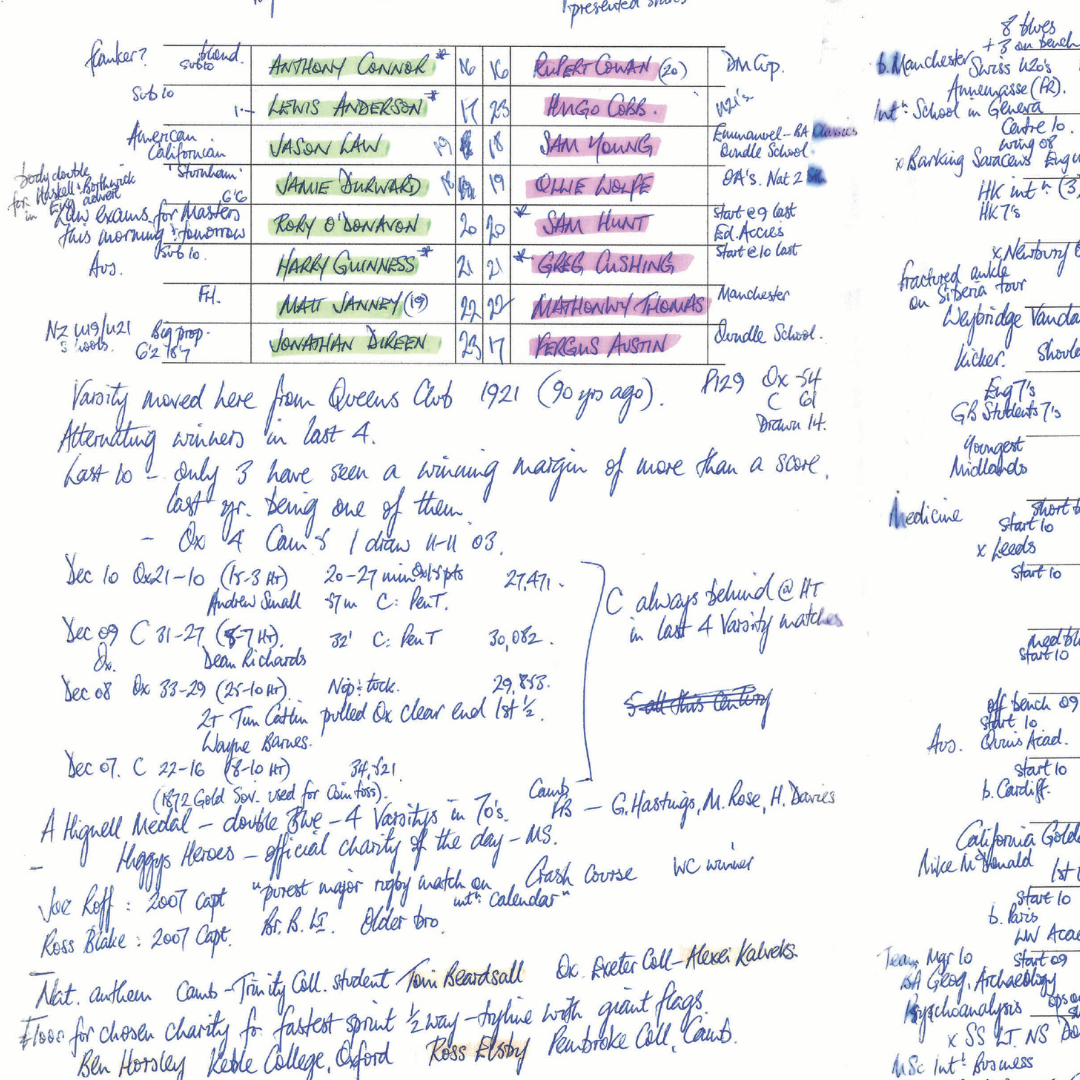 presented
flanker? blond. Sub 10 ANTHONY CONNOR* 16 16 RUPERT COWAN (20) DM Cup.
Sub 10 LEWIS ANDERSON* 17 23 HUGO COBB. U21's
American Californian JASON LAW 19 18 SAM YOUNG Emmanuel - BA Classics Oundle School.
body double for Haskell & Borthwick in Eng advert 6'6 JAMIE DURWARD 18 19 OLLIE WOLFE OA's. Nat 2
Law exams for Masters this morning & tomorrow RORY O'DONAVON 20 20 * SAM HUNT Start @ 9 last Ed. Accies
Aus. Sub 10. HARRY GUINNESS* 21 21 * GREG CUSHING Start @ 10 last
FH. MATT JANNEY (19) 22 22 MATHONWY THOMAS Manchester
NZ U19/U21 Big prop. 6'2 18'7 JONATHAN DIREEN 23 17 FERGUS AUSTIN Oundle School.
Varsity moved here from Queens Club 1921 (90 yrs ago).
P129 Ox 54
C 61
Drawn 14.
Alternating winners in last 4.
Last 10 - only 3 have seen a winning margin of more than a score,
last yr. being one of them
- Ox 4 Cam 5 1 draw 11-11 '03.
Dec 10 Ox 21-10 (15-3 HT) 20-27 min Ox 15 pts 27,471.
Andrew Small 57m C: Pen T.
Dec 09 C 31-27 (8-7 HT). 32' C: Pen T 30,082.
Ox. Dean Richards
Dec 08 Ox 33-29 (25-10 HT). Nip & tuck. 29,853.
2T Tim Catlin pulled Ox clear end 1st ½.
Wayne Barnes.
Dec 07. C 22-16 (8-10 HT) 34,521
(1872 Gold Sov. used for Coin toss).
C always behind @ HT
in last 4 Varsity matches
5 all this century
A Hignell Medal - double Blue - 4 Varsitys in 70's. Camb FB - G. Hastings, M. Rose, H. Davies
- Higgys Heroes - official charity of the day - MS.
Joe Roff: 2007 Capt "purest major rugby match on intn calendar" Crash Course WC winner
Ross Blake: 2007 Capt. Br. B. LI. Older bro.
Nat. anthem Camb - Trinity Coll. student Tom Beardsall Ox. Exeter Coll - Alexei Kalveks.
£1000 for chosen charity for fastest sprint ½ way - tryline with giant flags.
Ben Horsley Keble College, Oxford Ross Elsby Pembroke Coll, Camb.
8 blues
+ 3 on bench
b. Manchester Swiss U20s
Annemasse (FR).
Intn School in Geneva
Centre 10.
wing 08
x Barking Saracens Eng
HK intn (3,
HK 7's
x Newbury
fractured ankle
on Siberia tour
Weybridge Vanda
Kicker.
Eng 7's
GB Students 7's
Youngest
Midlands
Medicine
start 10
x Leeds
start 10
start 10
off bench 09
start 10
Aus. Quins Acad.
start 10
b. Cardiff.
California Gold
Mike McDonald
start 10
b. Paris
LW Acad
Team Mgr 10 start 09
BA Geog. Archaeology
Psychoanalysis
x SS LT. NS
MSc Intl Business